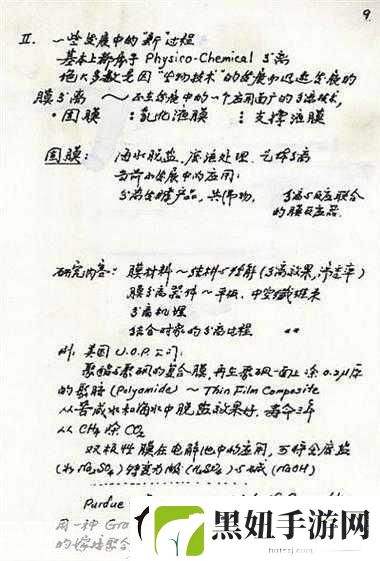 9.
II. 一些发展中的"新"过程
基本上都属于 Physico-Chemical 分离
绝大多数是因"生物技术"的发展而迅速发展的
膜分离 ～ 正在发展中的一个应用面广的分离技术,
·固膜 :乳化液膜 :支撑液膜
固膜: 海水脱盐、废液处理、气体分离
目前发展中的应用:
分离发酵产品,共沸物, 分离与反应联合
的膜反应器.
研究内容: 膜材料～结构与性能(分离效果,渗透率)
膜分离器件～平板、中空纤维束
分离机理
结合对象的分离过程
例: 美国 U.O.P. 公司:
聚酯与聚砜的复合膜,再在聚砜一面上涂 0.2μ厚
的聚胺 (Polyamide) ～ Thin Film Composite
从苦咸水和海水中脱盐效果好,寿命三年
从 CH4 除 CO2
双极性膜在电解池中的应用,可将金属盐
(如 Na2SO4) 转变为酸 (H2SO4) 与碱 (NaOH)
Purdue
用一种 Gra
的嫁接聚合
黑妞手游网